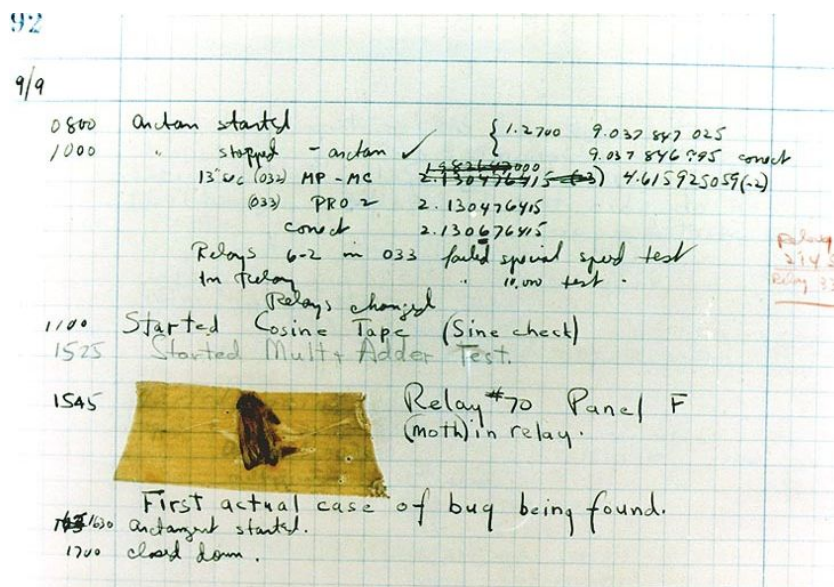 92
9/9
0800 arctan started { 1.2700 9.037 847 025
1000 " stopped - arctan ✓ 9.037 846 995 correct
13" sec (032) MP - MC 2.130476415 (-3) 4.615925059(-2)
(033) PRO 2 2.130476415
correct 2.130676415
Relays 6-2 in 033 failed special speed test
In Relay " 10.000 test.
Relays changed
Relay
2145
Relay 33
1100 Started Cosine Tape (Sine check)
1525 Started Mult + Adder Test.
1545 Relay #70 Panel F
(moth) in relay.
First actual case of bug being found.
1630 arctangent started.
1700 closed down.